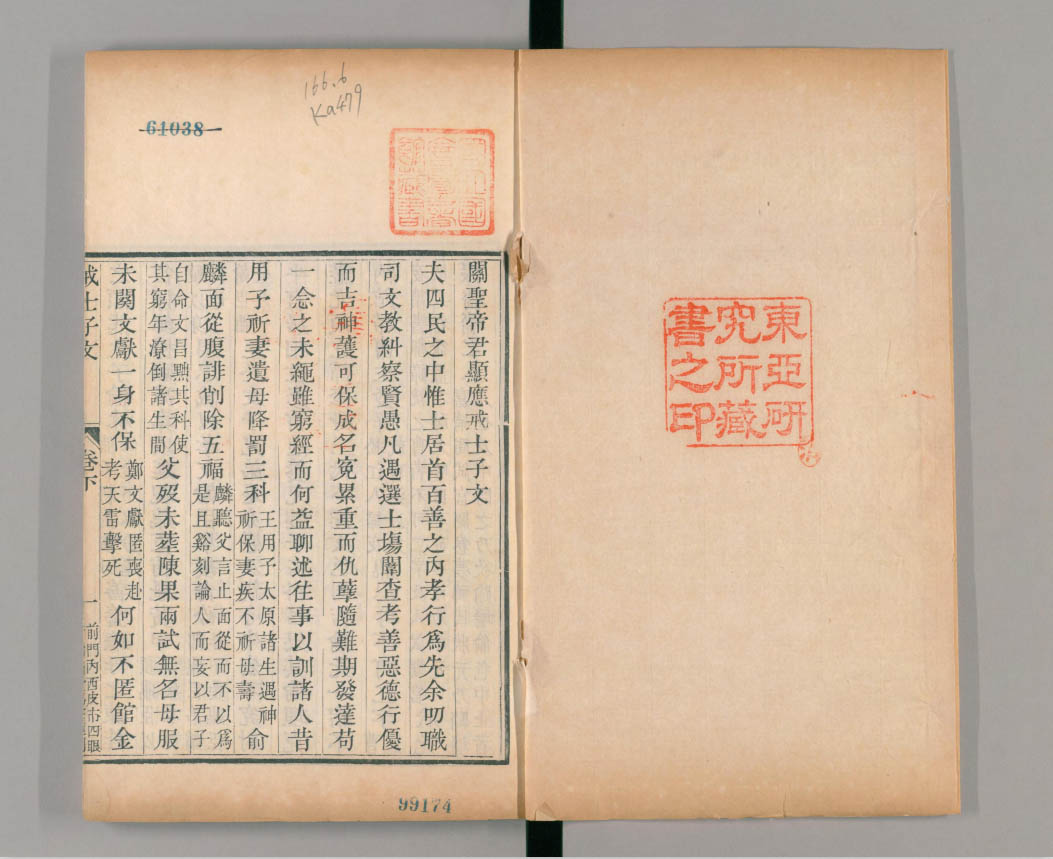 東亞研
究所藏
書之印
166.6
Ka479
61038
關聖帝君顯應戒士子文
夫四民之中惟士居首百善之內孝行爲先余叨職
司文教糾察賢愚凡遇選士塲闈查考善惡德行優
而吉神護可保成名寃累重而仇孽隨難期發達苟
一念之未繩雖窮經而何益聊述往事以訓諸人昔
用予祈妻遺母降罰三科王用予太原諸生遇神祈保妻疾不祈母壽俞
麟面從腹誹削除五福麟聽父言止面從而不以爲是且谿刻論人而妄以君子
自命文昌黜其科使其窮年潦倒諸生間父歿未葬陳果兩試無名母服
未闋文獻一身不保鄭文獻匿喪赴考天雷擊死何如不匿館金
戒士子文
卷下
一
前門內西皮市四眼
99174